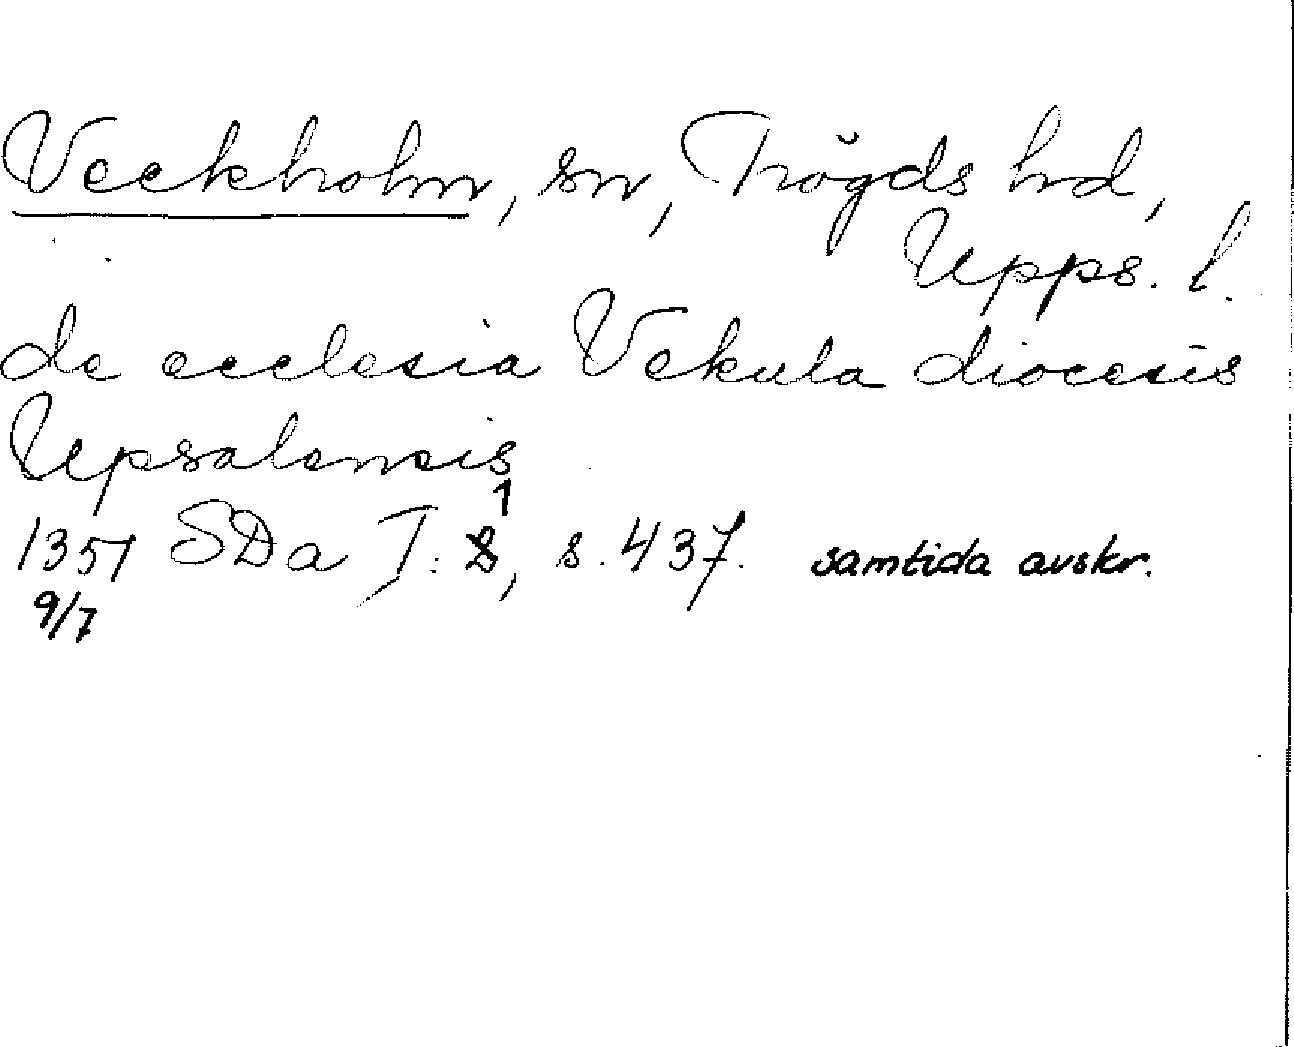 Veckholm, sn, Trögds hd,
Upps. l.
de ecclesia Vekula diocesis
Upsalensis
1
1351 SDa I: 8, s. 437. samtida avskr.
9/7